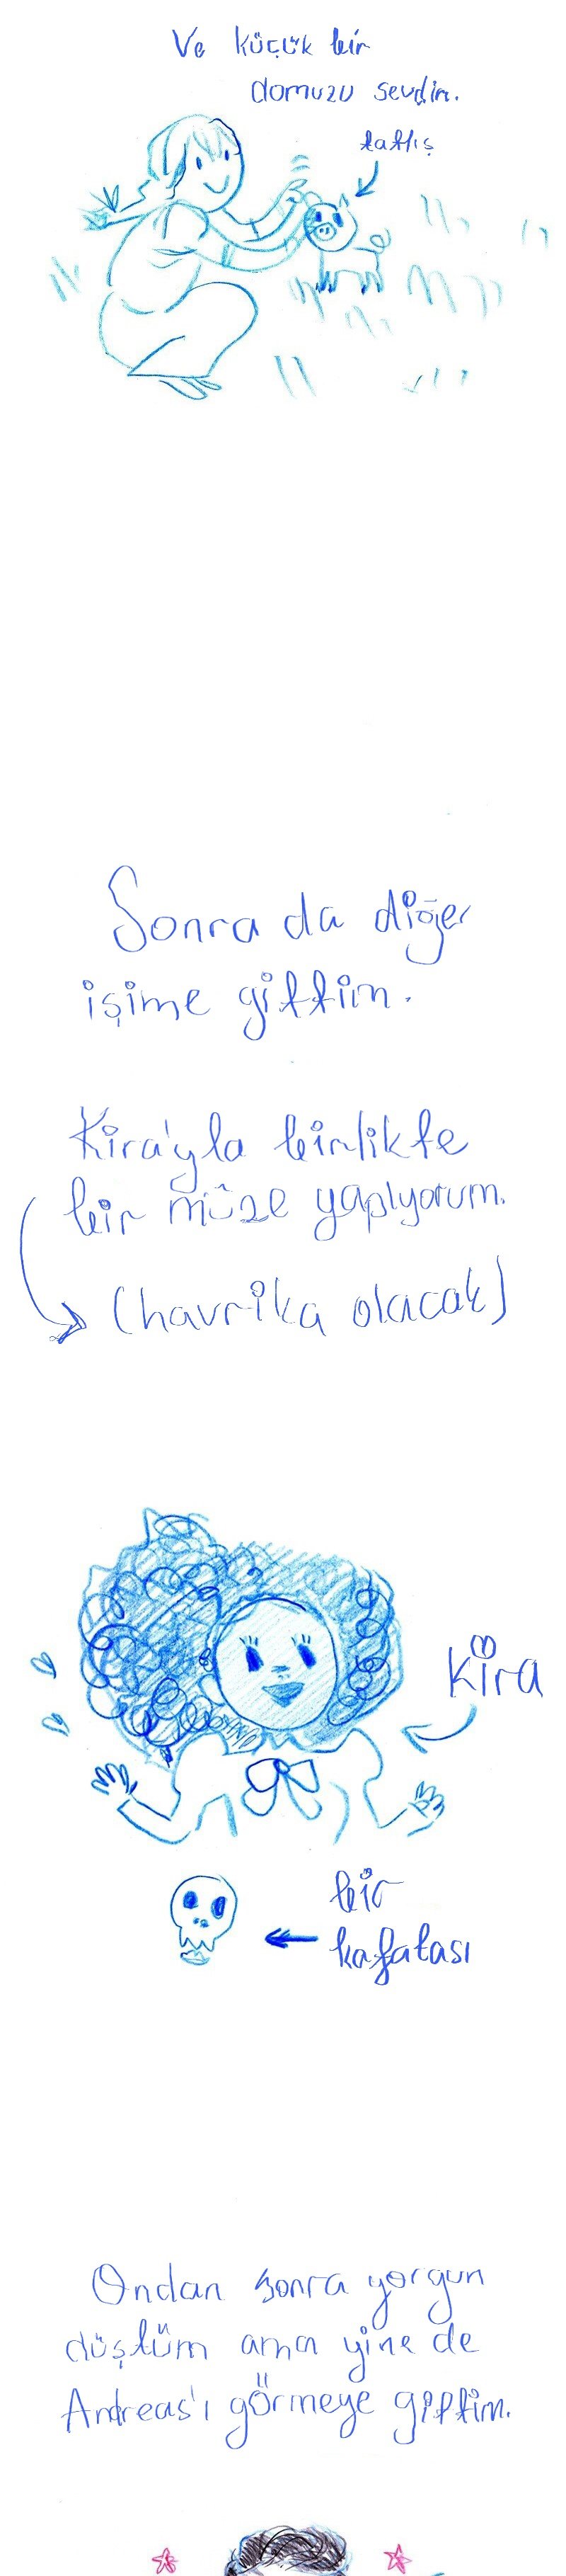 Ve küçük bir
domuzu sevdim.
tatlış
Sonra da diğer
işime gittim.
Kira'yla birlikte
bir müze yapıyorum.
(havrika olacak)
Kira
bir
kafatası
Ondan sonra yorgun
düştüm ama yine de
Andreas'ı görmeye gittim.